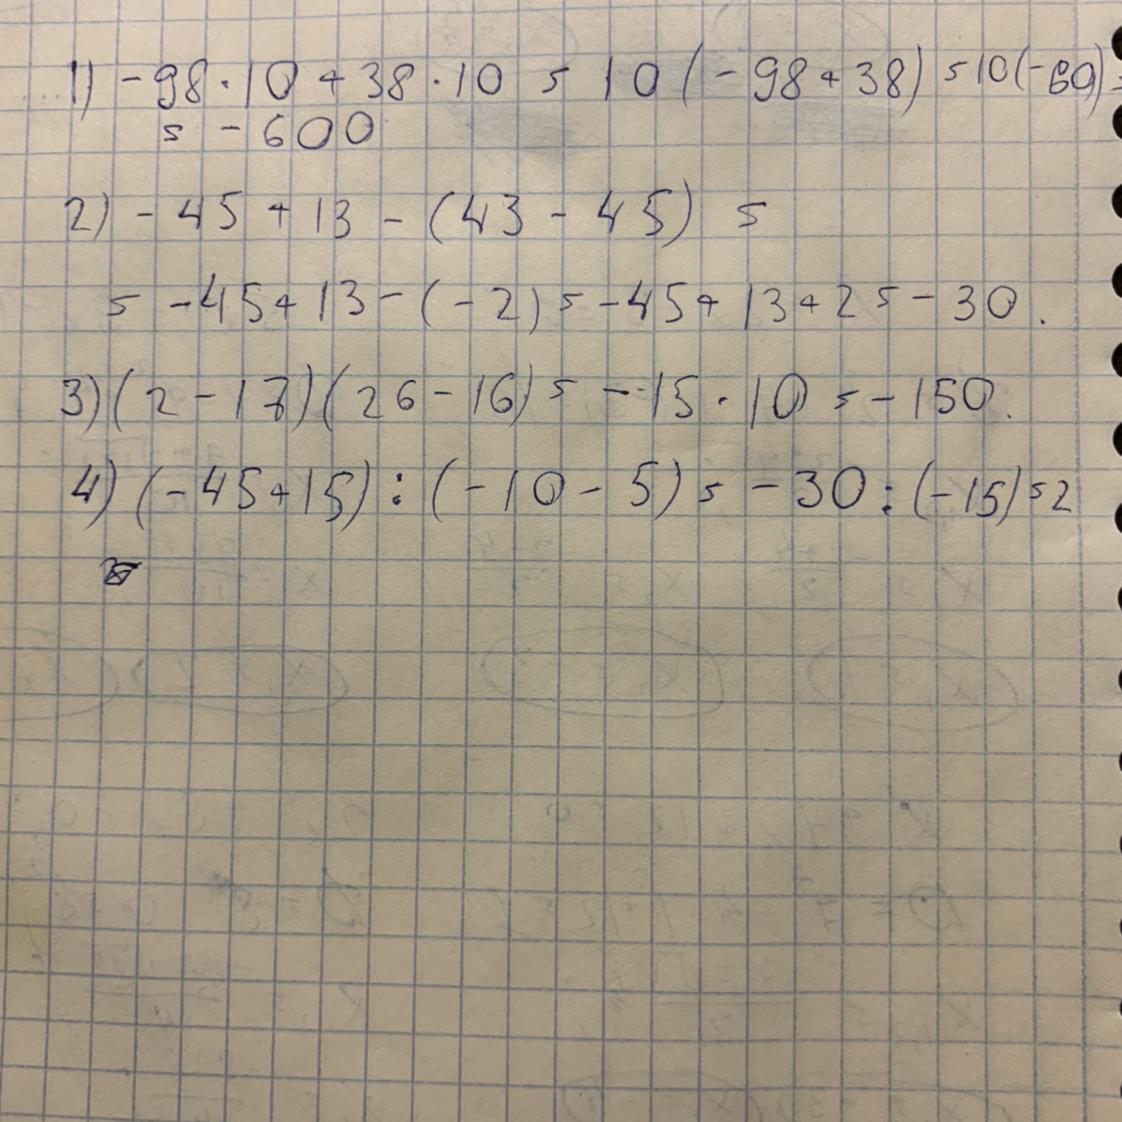 1) -98·10+38·10 = 10(-98+38) = 10(-60) =
= -600
2) -45+13-(43-45) =
= -45+13-(-2) = -45+13+2 = -30.
3) (2-17)(26-16) = -15·10 = -150.
4) (-45+15):(-10-5) = -30:(-15) = 2